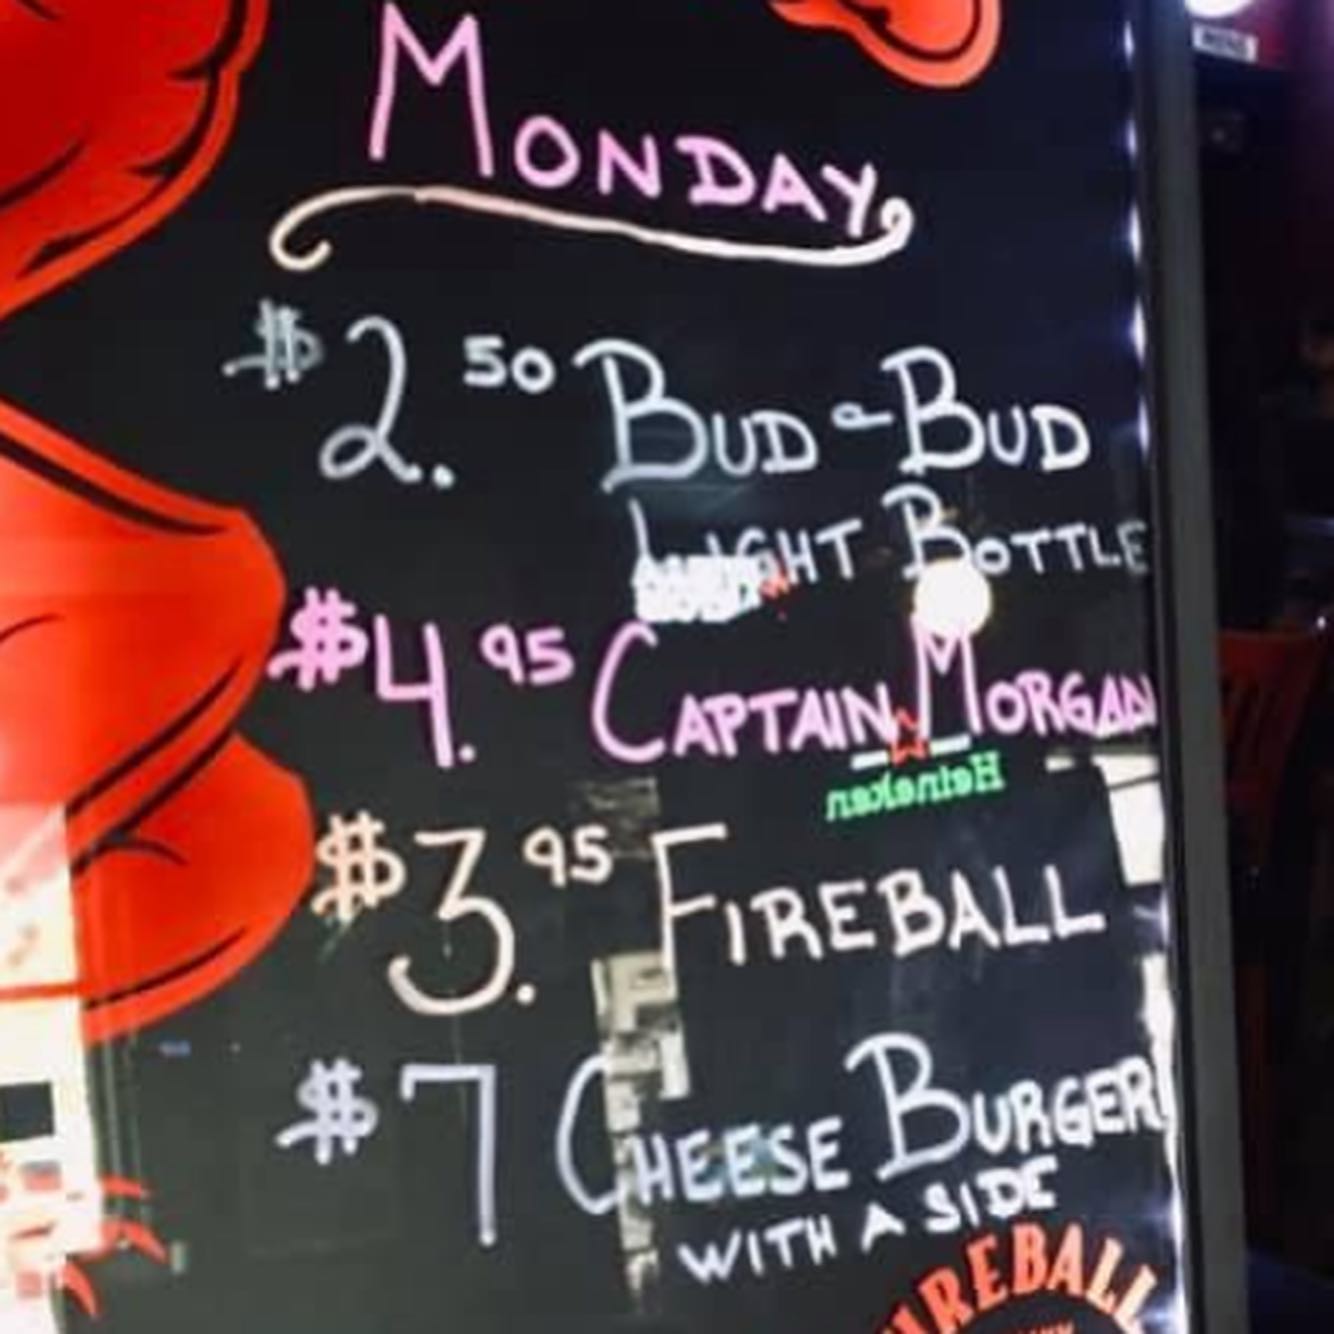 MONDAY
$2.50 BUD - BUD
LIGHT BOTTLE
$4.95 CAPTAIN MORGAN
Heineken
$3.95 FIREBALL
$7 CHEESE BURGER
WITH A SIDE
FIREBALL